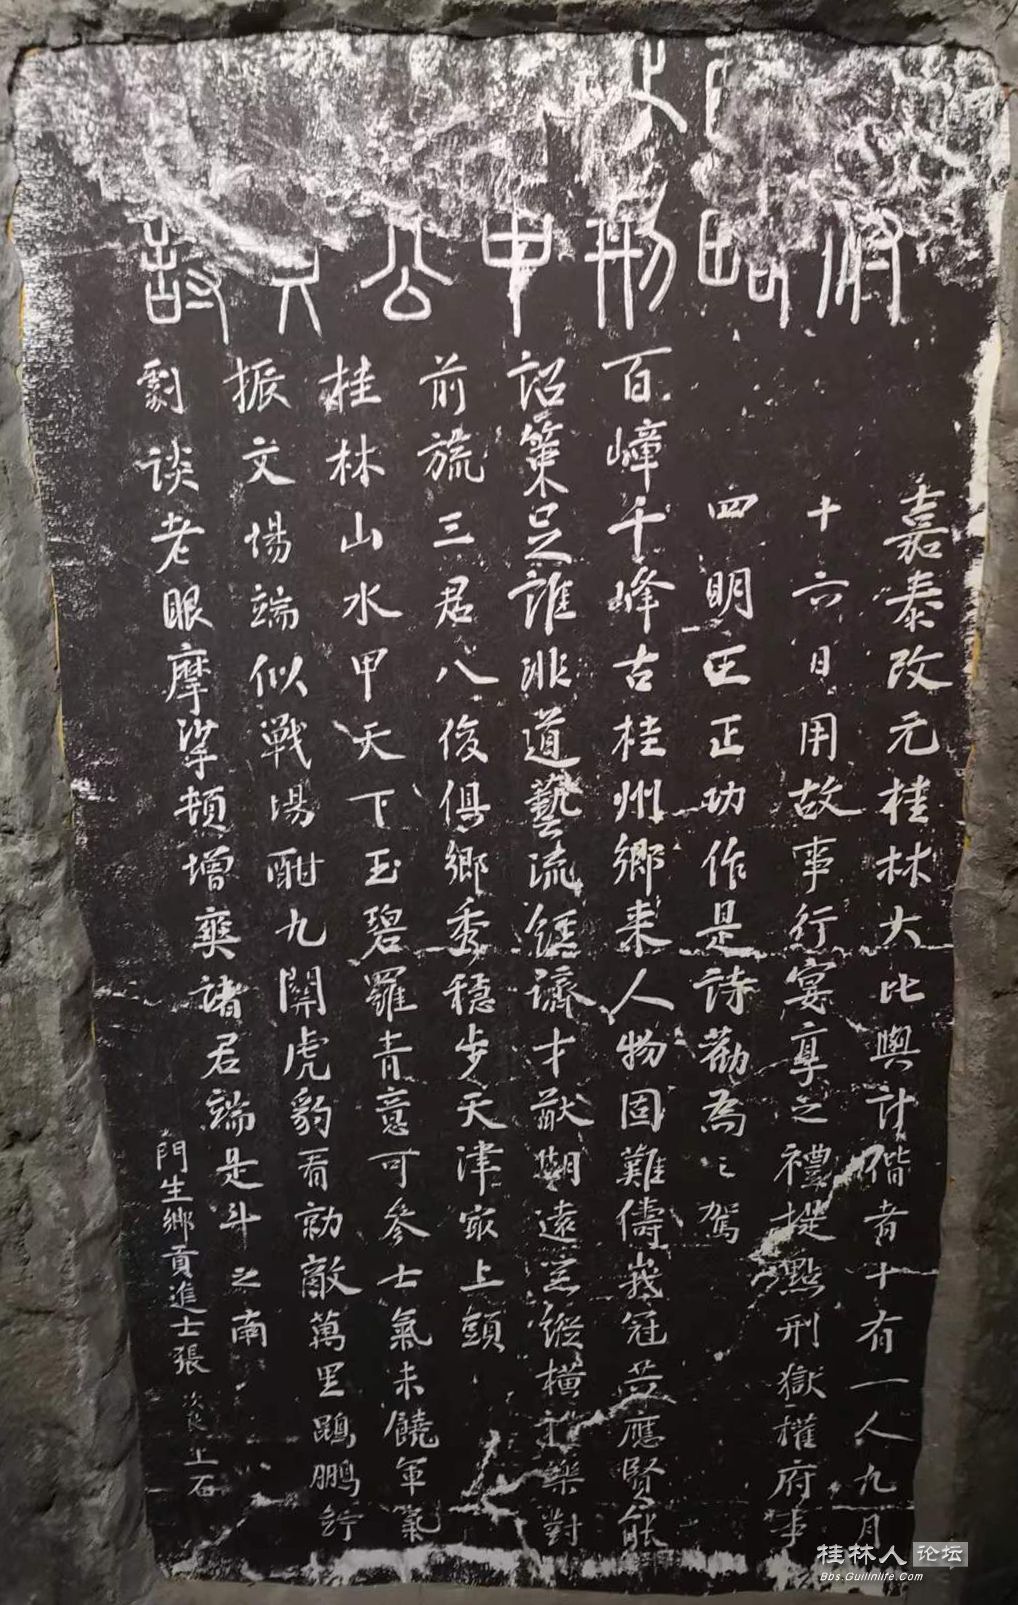 府略刑公詩
嘉泰改元桂林大比與計偕者十有一人九月
十六日用故事行宴享之禮提點刑獄權府事
四明王正功作是詩勸為之駕
百嶂千峰古桂州鄉來人物固難儔峩冠共應賢能
詔策足誰非道藝流經濟才猷期遠宏縱橫禮樂對
前旒三君八俊俱鄉秀穩步天津最上頭
桂林山水甲天下玉碧羅青意可參士氣未饒軍氣
振文場端似戰場酣九關虎豹看勍敵萬里鵾鵬佇
劇談老眼摩挲頓增爽諸君端是斗之南
門生鄉貢進士張次良上石
桂林人论坛
Bbs.Guilinlife.Com